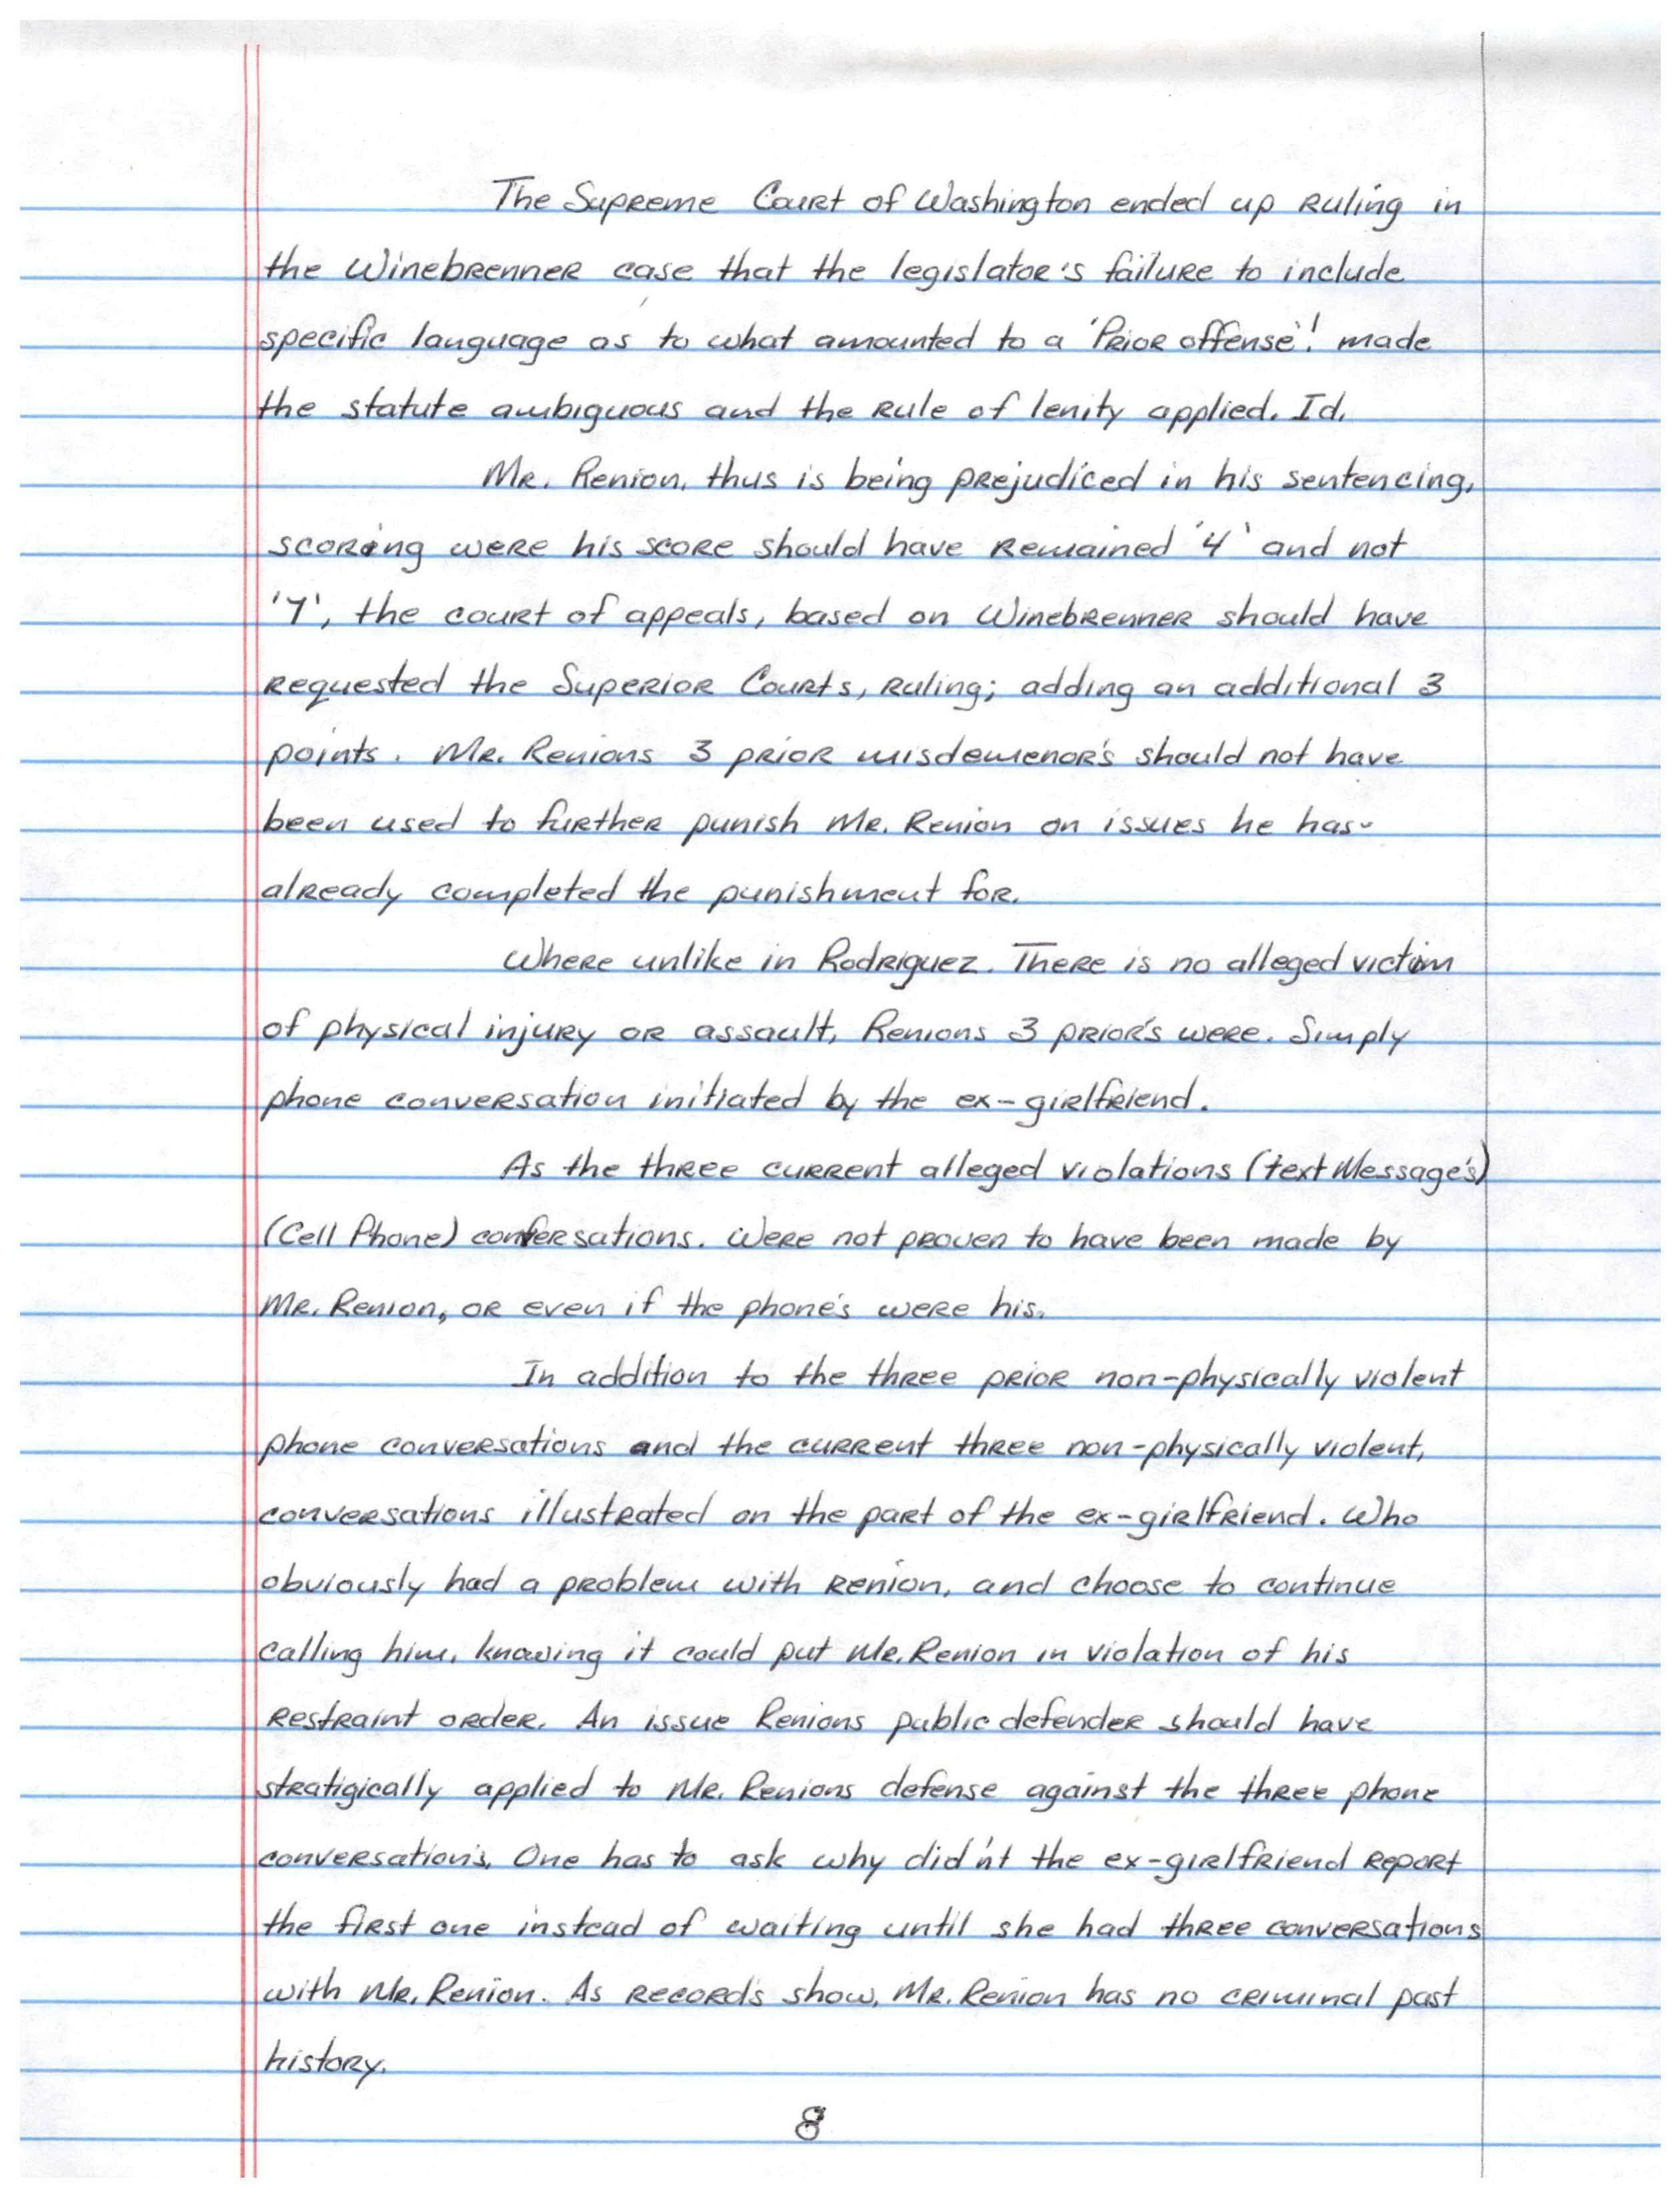 The Supreme Court of Washington ended up ruling in
the Winebrenner case that the legislator's failure to include
specific language as to what amounted to a 'Prior offense'! made
the statute ambiguous and the rule of lenity applied. Id.
Mr. Renion, thus is being prejudiced in his sentencing,
scoring were his score should have remained '4' and not
'7', the court of appeals, based on Winebrenner should have
requested the Superior Courts, ruling; adding an additional 3
points. Mr. Renions 3 prior misdemenor's should not have
been used to further punish Mr. Renion on issues he has
already completed the punishment for.
Where unlike in Rodriguez. There is no alleged victim
of physical injury or assault, Renions 3 prior's were. Simply
phone conversation initiated by the ex-girlfriend.
As the three current alleged violations (text Message's)
(Cell Phone) confersations. Were not proven to have been made by
Mr. Renion, or even if the phone's were his.
In addition to the three prior non-physically violent
phone conversations and the current three non-physically violent,
conversations illustrated on the part of the ex-girlfriend. Who
obviously had a problem with Renion, and choose to continue
calling him, knowing it could put Mr. Renion in violation of his
restraint order. An issue Renions public defender should have
stratigically applied to Mr. Renions defense against the three phone
conversation's. One has to ask why did'nt the ex-girlfriend report
the first one instead of waiting until she had three conversations
with Mr. Renion. As record's show, Mr. Renion has no criminal past
history.
8